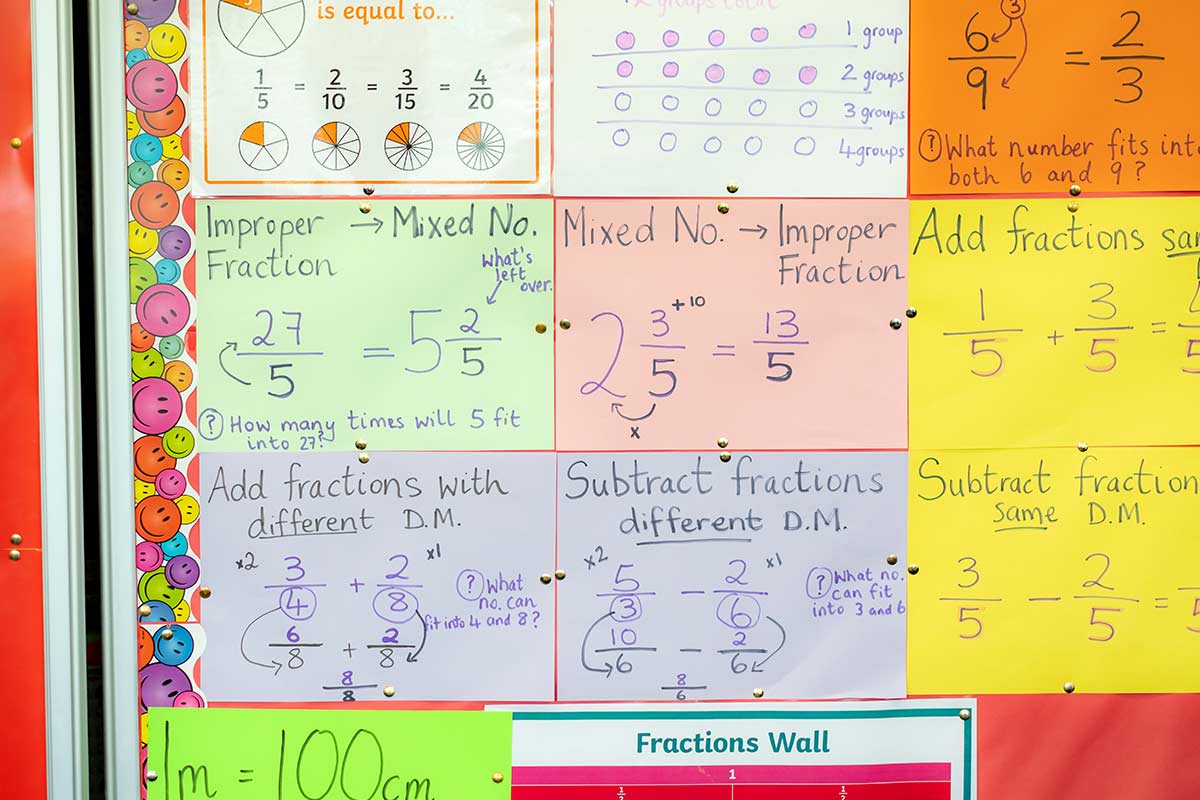 is equal to...
1/5 = 2/10 = 3/15 = 4/20
groups total
1 group
2 groups
3 groups
4 groups
3
6/9 = 2/3
? What number fits into
both 6 and 9?
Improper → Mixed No.
Fraction
what's
left
over.
27/5 = 5 2/5
? How many times will 5 fit
into 27?
Mixed No. → Improper
Fraction
+10
2 3/5 = 13/5
x
Add fractions
1/5 + 3/5 =
Add fractions with
different D.M.
x2 3/4 + 2/8 x1
? What
no. can
fit into 4 and 8?
6/8 + 2/8
8/8
Subtract fractions
different D.M.
x2 5/3 - 2/6 x1
? What no.
can fit
into 3 and 6
10/6 - 2/6
8/6
Subtract fraction
same D.M.
3/5 - 2/5 =
1m = 100cm
Fractions Wall
1
1/2 1/2